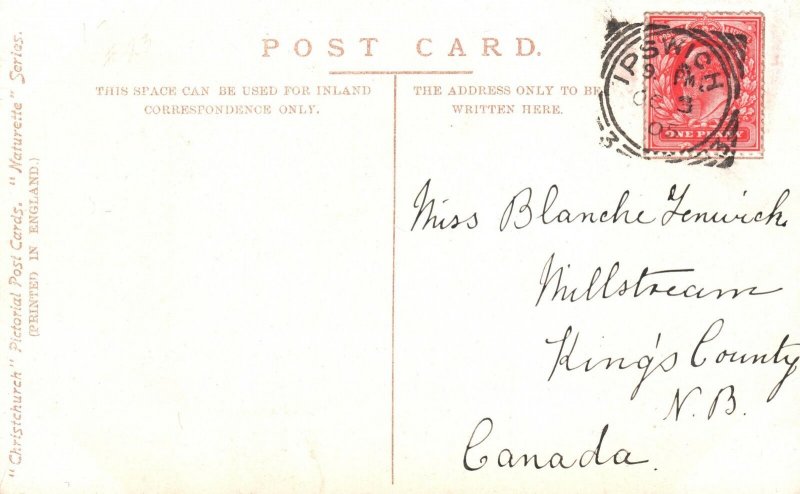 POST CARD.
THIS SPACE CAN BE USED FOR INLAND
CORRESPONDENCE ONLY.
THE ADDRESS ONLY TO BE
WRITTEN HERE.
IPSWICH
9 PM
OC 3
05
3
3
ONE PENNY
Miss Blanche Fenwick
Millstream
King's County
N.B.
Canada.
"Christchurch" Pictorial Post Cards. "Naturette" Series.
(PRINTED IN ENGLAND.)